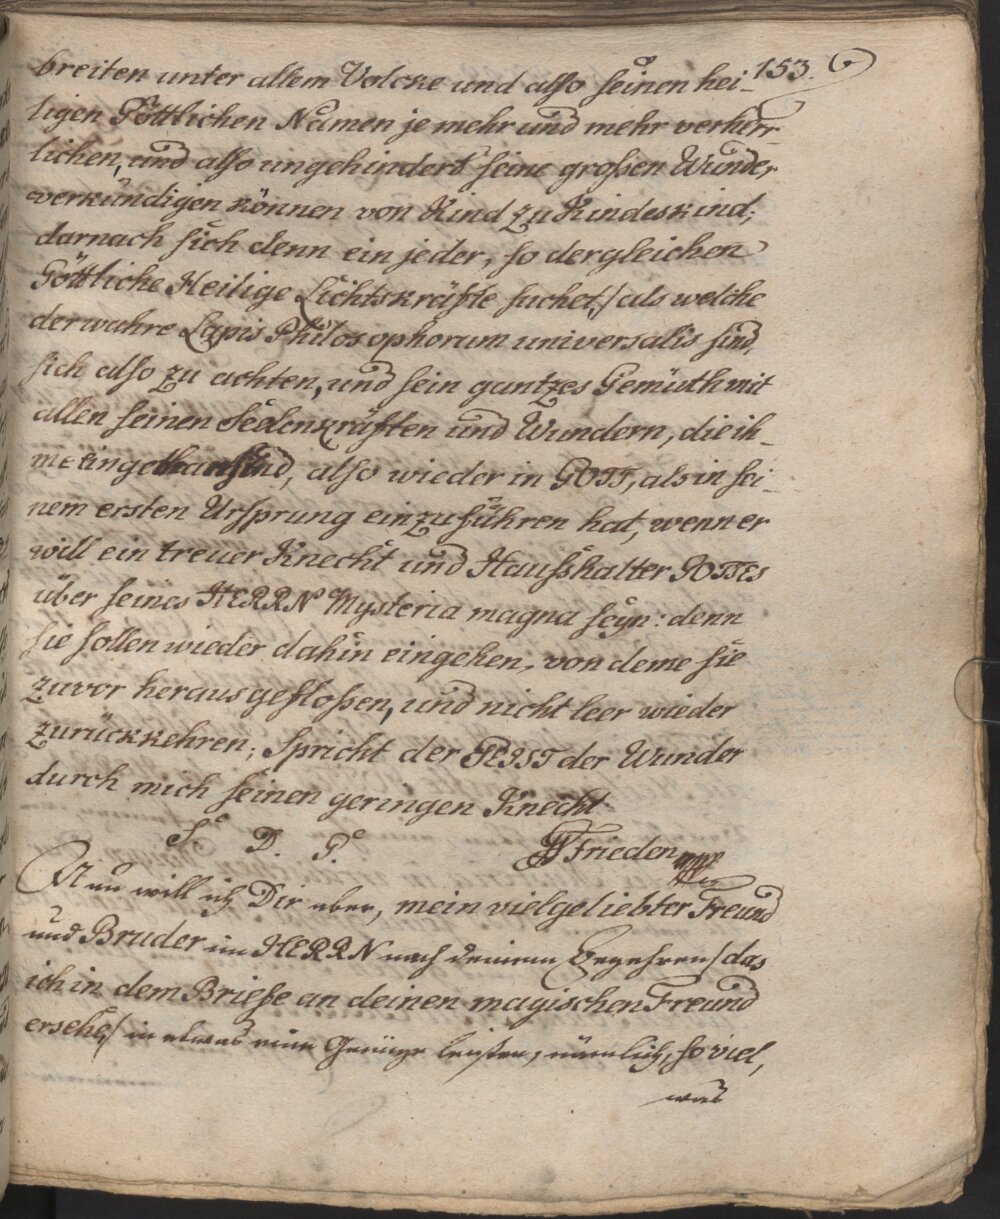 153.
breiten unter allem Volcke und also seinen hei-
ligen Göttlichen Namen je mehr und mehr verherr
lichen, und also ungehindert seine großen Wunder
verkündigen können von Kind zu Kindeskind;
darnach sich denn ein jeder, so dergleichen
Göttliche Heilige Lichtskräfte suchet, / als welche
der wahre Lapis Philosophorum universalis sind,
sich also zu achten, und sein gantzes Gemüth mit
allen seinen Seelenkräften und Wundern, die ih-
me eingethan sind, also wieder in GOTT, als in sei-
nem ersten Ursprung einzuführen hat, wenn er
will ein treuer Knecht und Haußhalter GOTTES
über seines HERRN Mysteria magna seyn: denn
sie sollen wieder dahin eingehen, von deme sie
zuvor heraus geflossen, und nicht leer wieder
zurückkehren; spricht der GEIST der Wunder
durch mich seinen geringen Knecht
S. D. G. Frieden
Nun will ich Dir aber, mein vielgeliebter Freund
und Bruder im HERRN nach deinem Begehren / das
ich in dem Briefe an deinen magischen Freund
ersehe / in etwas eine Genüge leisten, nämlich, so viel,
was